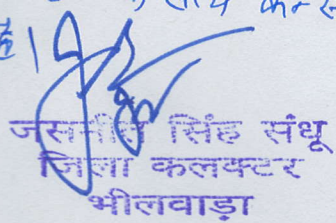 साथ
जसमीत सिंह संधू
जिला कलक्टर
भीलवाड़ा